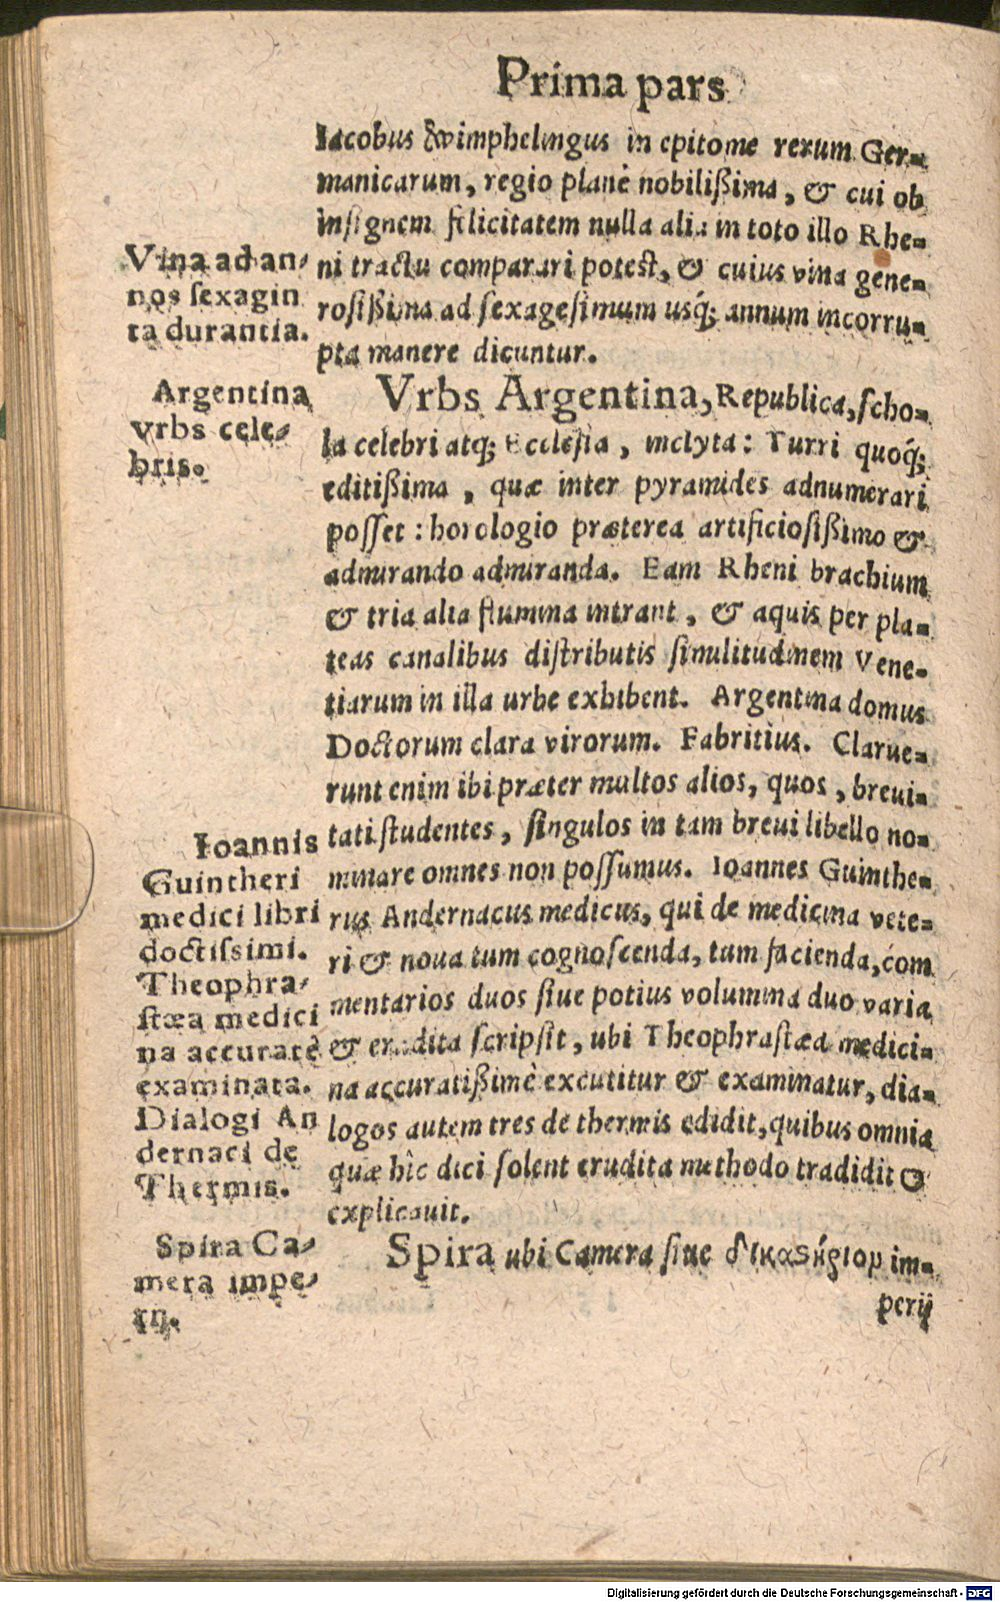 Prima pars
Iacobus Wimphelingus in epitome rerum Ger-
manicarum, regio planè nobilißima, & cui ob
insignem felicitatem nulla alia in toto illo Rhe-
ni tractu comparari potest, & cuius vina gene-
rosißima ad sexagesimum usq; annum incorru-
pta manere dicuntur.
Vina ad an-
nos sexagin
ta durantia.
Vrbs Argentina, Republica, scho-
la celebri atq; Ecclesia, inclyta: Turri quoq;
editißima, quæ inter pyramides adnumerari
posset: horologio præterea artificiosißimo &
admirando admiranda. Eam Rheni brachium
& tria alia flumina intrant, & aquis per pla-
teas canalibus distributis similitudinem Vene-
tiarum in illa urbe exhibent. Argentina domus
Doctorum clara virorum. Fabritius. Clarue-
runt enim ibi præter multos alios, quos, breui-
tati studentes, singulos in tam breui libello no-
minare omnes non possumus. Ioannes Guinthe-
rus Andernacus medicus, qui de medicina vete-
ri & noua tum cognoscenda, tum facienda, com
mentarios duos siue potius volumina duo varia
& erudita scripsit, ubi Theophrastæa medici-
na accuratißimè excutitur & examinatur, dia-
logos autem tres de thermis edidit, quibus omnia
quæ hîc dici solent erudita methodo tradidit &
explicauit.
Argentina
vrbs cele-
bris.
Ioannis
Guintheri
medici libri
doctissimi.
Theophra-
stæa medici
na accuratè
examinata.
Dialogi An
dernaci de
Thermis.
Spira ubi Camera siue δικαςήριον im-
perij
Spira Ca-
mera impe-
rij.
Digitalisierung gefördert durch die Deutsche Forschungsgemeinschaft - DFG